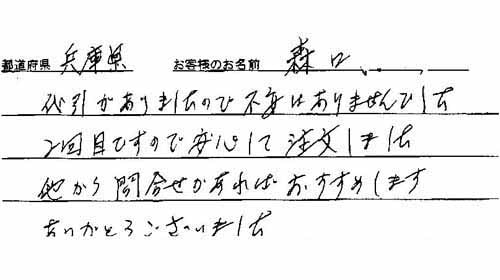 都道府県 兵庫県 お客様のお名前 森口
代引がありましたので不安はありませんでした
2回目ですので安心して注文しました
他から問合せがあればおすすめします
ありがとうございました